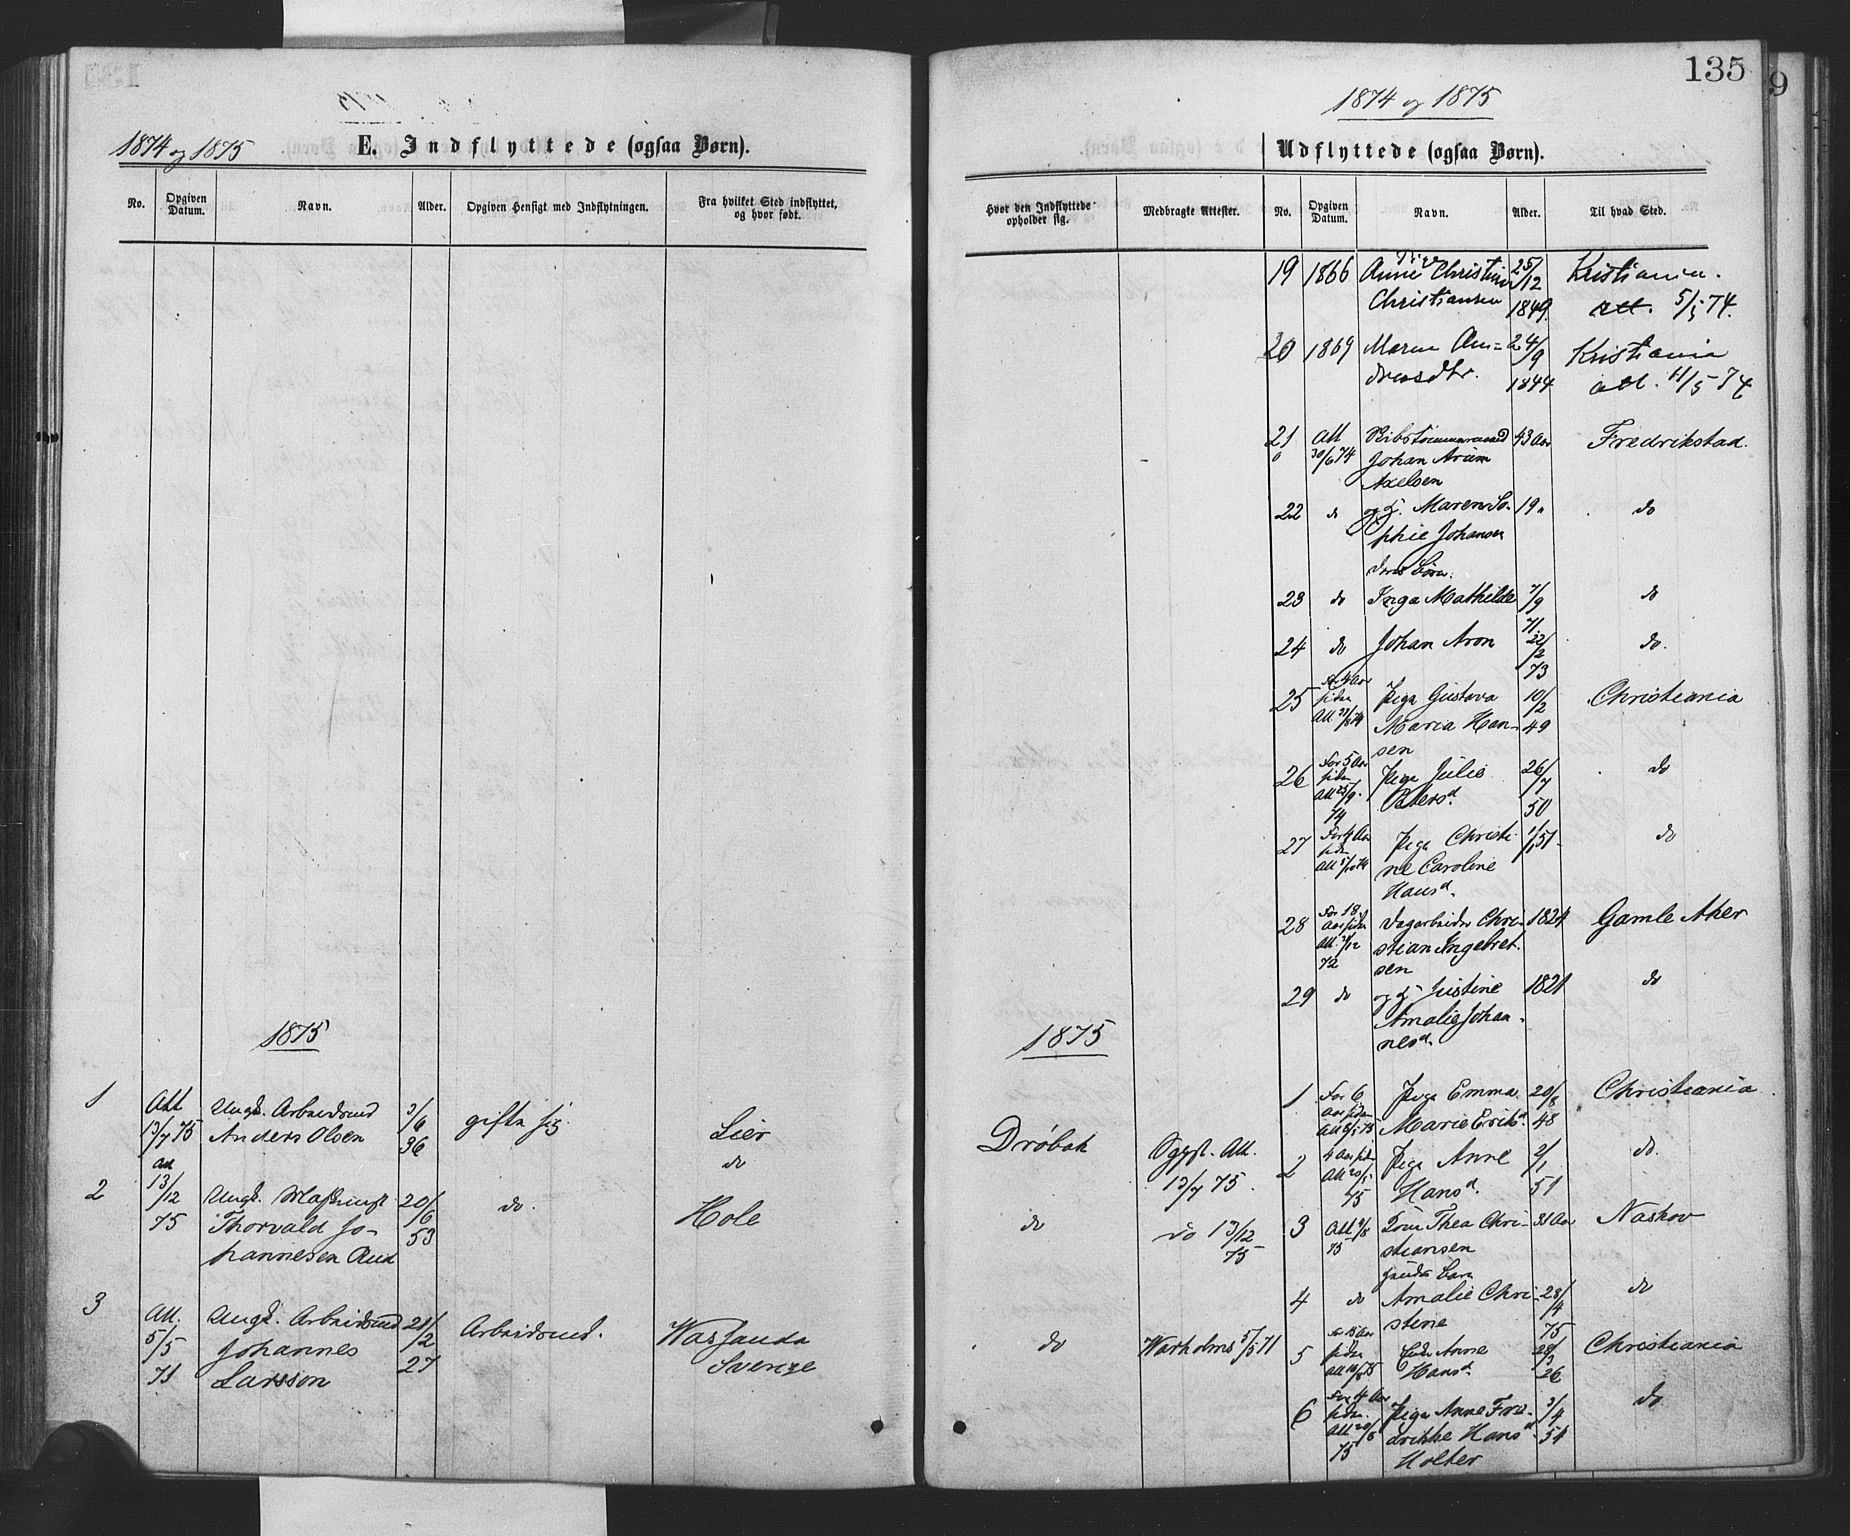 135
9
1874 og 1875
1874 og 1875
E. Indflyttede (ogsaa Børn).
No.
Opgiven Datum.
Navn.
Alder.
Opgiven Hensigt med Indflytningen.
Fra hvilket Sted indflyttet, og hvor født.
1875
1
Att 13/7 75
Ungk. Arbeidsmd
Anders Olsen
3/6 36
gifte sig
Lier
do
2
att 13/12 75
Ungk.
Thorvald Jo-
hannesen Rud
20/6 53
do.
Hole
3
Att. 5/5 71
Ungk. Arbeidsmd
Johannes
Larsson
21/2 27
Arbeidsmd.
Sverige
Udflyttede (ogsaa Børn).
Hvor den Indflyttede opholder sig.
Medbragte Attester.
No.
Opgiven Datum.
Navn.
Alder.
Til hvad Sted.
19 1866 Pige Anne Christine 25/12 Kristiania.
Christiansen 1849. att. 5/5 74.
20 1869 Maren An= 24/9 Kristiania
dreasdtr. 1844 att. 11/5 74
21 Att 30/6 74 Skibstømmermand 43 Aar Fredrikstad.
Johan Aron
Axelsen
22 do og H. Maren So- 19 " do
phie Johansen
deres Børn:
23 do Inga Mathilde 7/9 71. do
24 do Johan Aron 22/2 73 do.
25 For 4 Aar siden Pige Gustava 10/2 49 Christiania
Maria Han-
sen
26 For 5 Aar siden Att 25/9 74 Pige Julie 26/7 50 do
Petersd.
27 For 4 Aar siden Att 5/10 74 Pige Christi- 1/1 51 do
ne Caroline
Hansd.
28 For 18 Aar siden Att 2/12 72 Dagarbeider Chri- 1824 Gamle Aker
stian Ingebret-
sen
29 do og H. Justine 1821 do
Amalie Johan-
nesd.
1875
1 For 6 Aar siden Pige Emma 20/8 48 Christiania
Marie Eriksd.
Drøbak
Sgpr. Att. 13/7 75.
2 4 Aar siden Att 20/5 75 Pige Anne 2/1 51 do.
Hansd.
do
do 13/12 75
3 Att 4/8 75 Thea Chri- 31 Aar Naskov
stiansen
hendes Barn
4 do Amalie Chri- 28/4 75 do
stine
do
Warholms 5/5 71
5 siden Anne 28/3 26 Christiania
Hansd
6 For 4 Aar siden. Att 20/8 75 Pige Anne Fre- 3/4 51 do
drikke Hansd
Holter